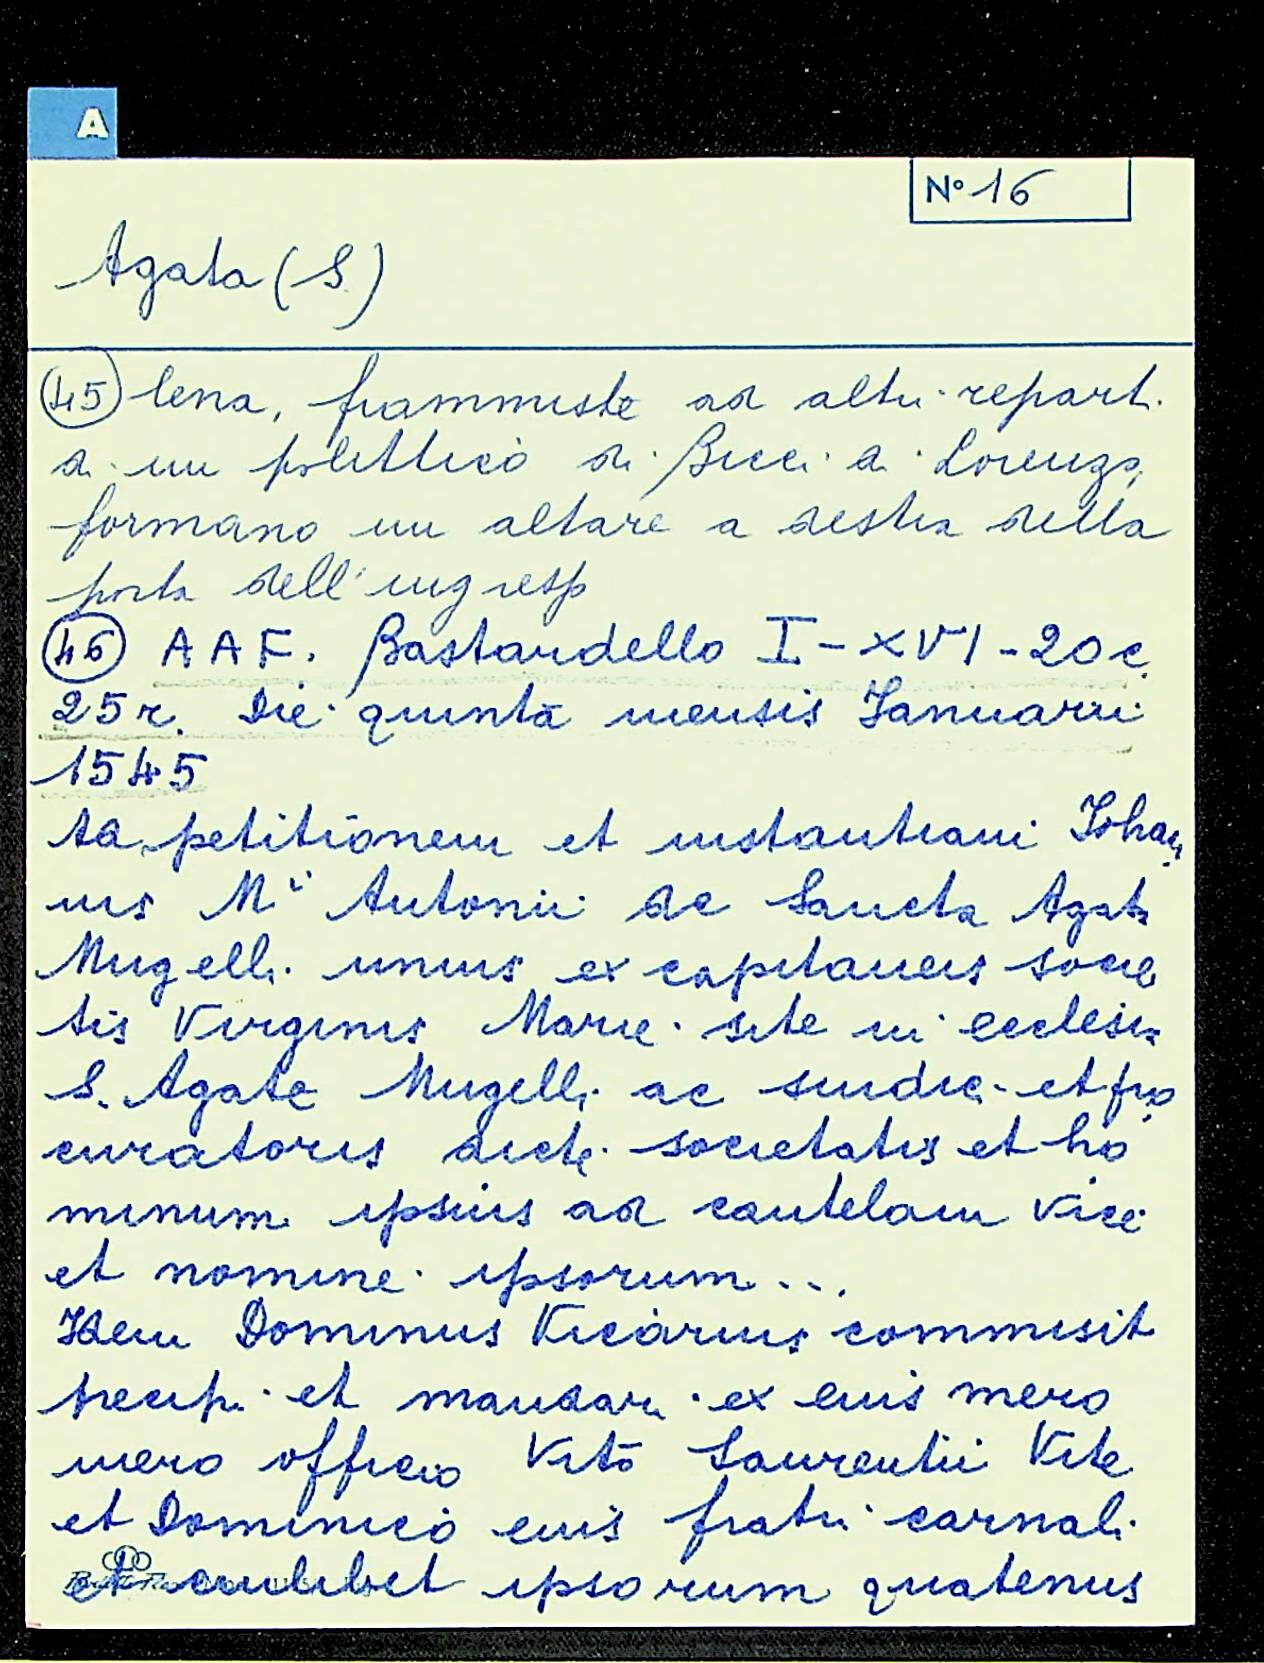 A
N° 16
Agata (S)
45 lena, frammiste ad altri reparti
di un polittico di Bicci di Lorenzo,
formano un altare a destra della
porta dell'ingresso
46 AAF. Bastardello I-XVI-20 c.
25 r. Die quinta mensis Januarii
1545
Ad petitionem et instantiam Johan
nis Mi Antonii de Sancta Agata
Mugelli unius ex capitaneis socie
tatis Virginis Marie site in ecclesia
S. Agate Mugelli ac sindici et pro
curatoris dicte societatis et ho
minum ipsius ad cautelam vice
et nomine ipsorum...
Idem Dominus Vicarius commisit
precip. et mandavi ex eius mero
mero officio Vito Laurentii Vite
et Dominico eius fratri carnali
et cuilibet ipsorum quatenus